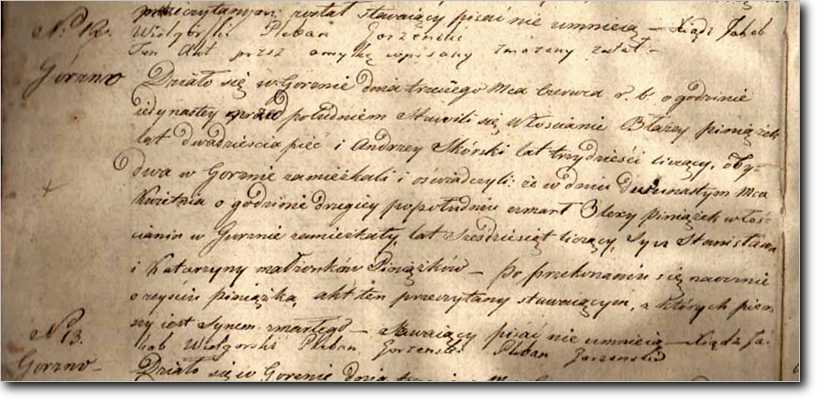 przeczytanym został stawaiący pisać nie umnieią – Xiądz Jakob
No. 12. Wiolgorski Pleban Gorzenski
Ten Akt przez omyłkę wpisany zwożony został –
Górzno Działo się w Gorznie dnia trzeciego Mca Czerwca r. b. o godzinie
iedynastey przed południem Stawili się Włościanie Błazey Pieniążek
lat dwadzieścia pięć i Andrzey Skórski lat trzydzieści liczący, oby-
dwa w Gorznie zamieszkali i oświadczyli: że w dniu Dwunastym Mca
Kwietnia o godzinie drugiey popołudniu zmarł Błazey Pieniążek włoś-
cianin w Gorznie zamieszkały, lat Sześdziesiąt liczący, Syn Stanisława
i Katarzyny małżonków Pieniążków – Po przekonaniu się naocznie
o zeyściu Pieniążka, akt ten przeczytany stawaiącym, z których pier-
szy iest Synem zmarłego – Stawaiący pisać nie umnieią – Xiądz Ja-
No 13. kob Wiolgorski Pleban Gorzenski Pleban Gorzenski
Gorzno – Działo się w Gorznie dnia